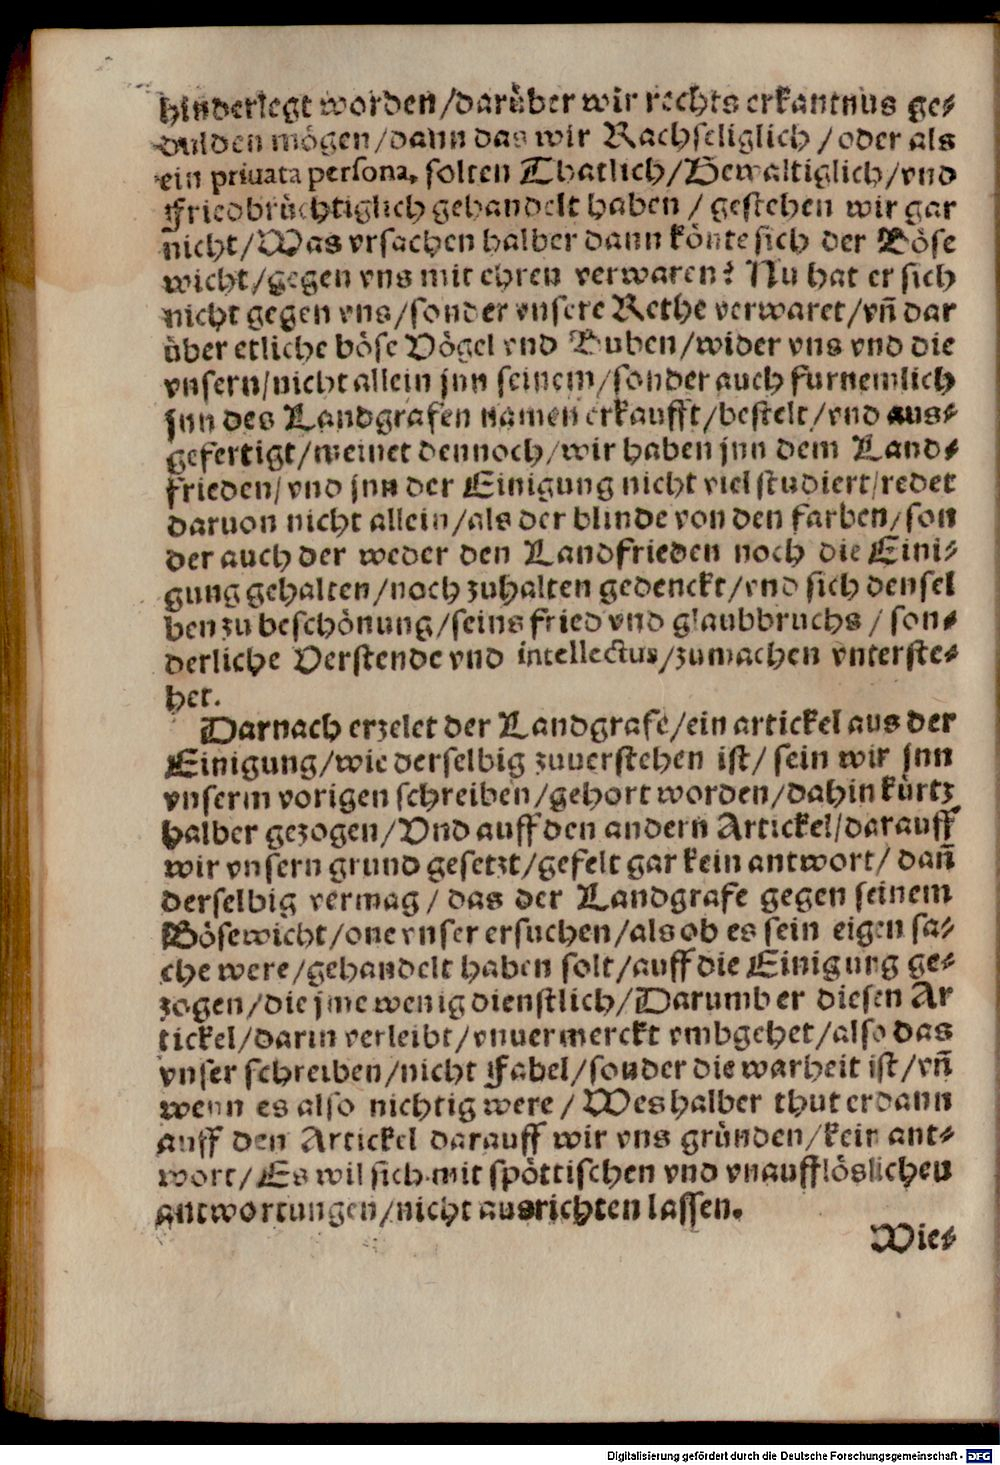 hinderlegt worden/darüber wir rechts erkantnus ge-
dulden mögen/dann das wir Rachseliglich/oder als
ein priuata persona, solten Thatlich/Gewaltiglich/vnd
Friedbrüchtiglich gehandelt haben/gestehen wir gar
nicht/Was vrsachen halber dann könte sich der Böse
wicht/gegen vns mit ehren verwaren? Nu hat er sich
nicht gegen vns/sonder vnsere Rethe verwaret/vñ dar
über etliche böse Vögel vnd Buben/wider vns vnd die
vnsern/nicht allein jnn seinem/sonder auch furnemlich
jnn des Landgrafen namen erkaufft/bestelt/vnd aus-
gefertigt/meinet dennoch/wir haben jnn dem Land-
frieden/vnd jnn der Einigung nicht viel studiert/redet
daruon nicht allein/als der blinde von den farben/son
der auch der weder den Landfrieden noch die Eini-
gung gehalten/noch zuhalten gedenckt/vnd sich densel
ben zu beschönung/seins fried vnd glaubbruchs/son-
derliche Verstende vnd intellectus/zumachen vnterste-
het.
Darnach erzelet der Landgrafe/ein artickel aus der
Einigung/wie derselbig zuuerstehen ist/sein wir jnn
vnserm vorigen schreiben/gehort worden/dahin kürtz
halber gezogen/Vnd auff den andern Artickel/darauff
wir vnsern grund gesetzt/gefelt gar kein antwort/dañ
derselbig vermag/das der Landgrafe gegen seinem
Bösewicht/one vnser ersuchen/als ob es sein eigen sa-
che were/gehandelt haben solt/auff die Einigung ge-
zogen/die jme wenig dienstlich/Darumb er diesen Ar
tickel/darin verleibt/vnuermerckt vmbgehet/also das
vnser schreiben/nicht Fabel/sonder die warheit ist/vñ
wenn es also nichtig were/Weshalber thut er dann
auff den Artickel darauff wir vns gründen/kein ant-
wort/Es wil sich mit spöttischen vnd vnaufflöslichen
antwortungen/nicht ausrichten lassen.
Wie-
Digitalisierung gefördert durch die Deutsche Forschungsgemeinschaft - DFG